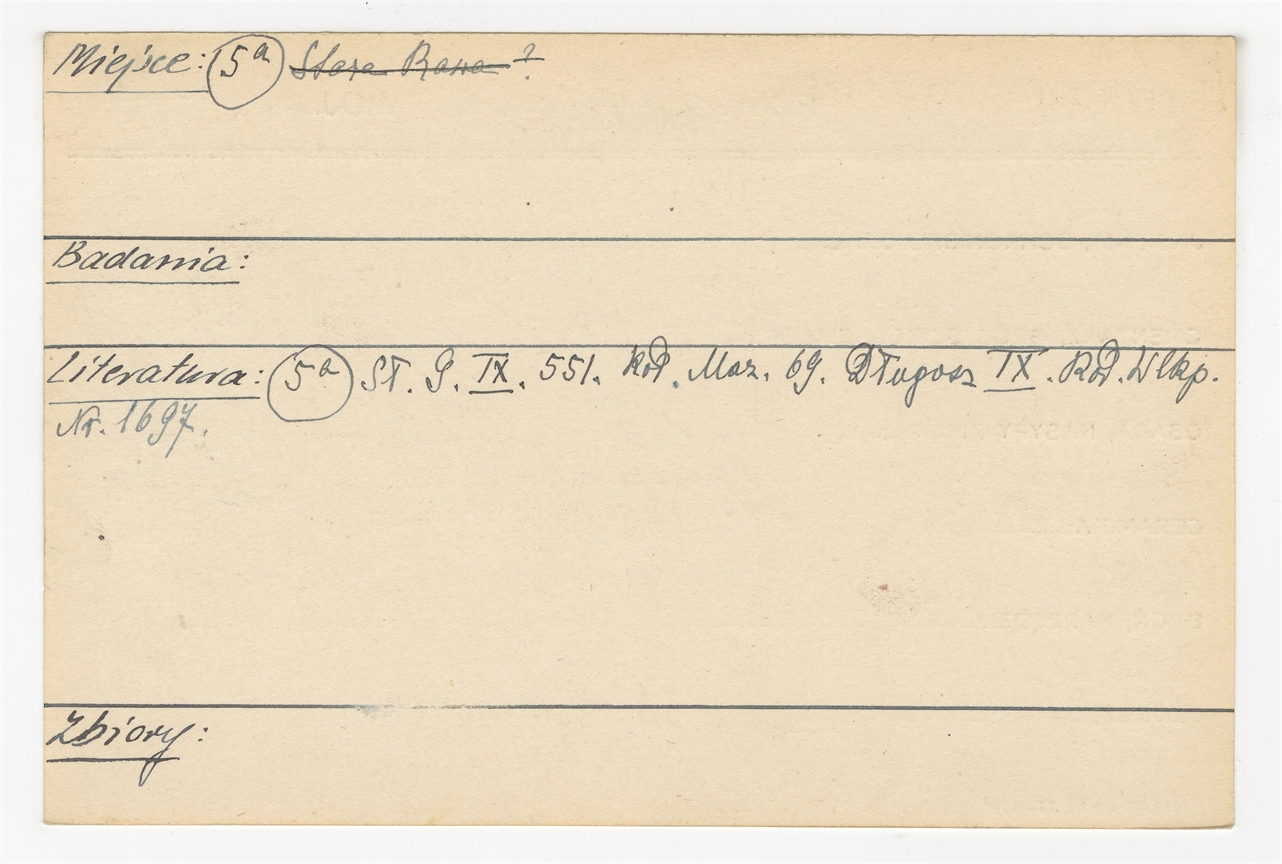 Miejsce: 5a Stara Rawa ?
Badania:
Literatura: 5a St. G. IX. 551. Kod. Maz. 69. Długosz IX. Kod. Wlkp.
Nr. 1697.
Zbiory: